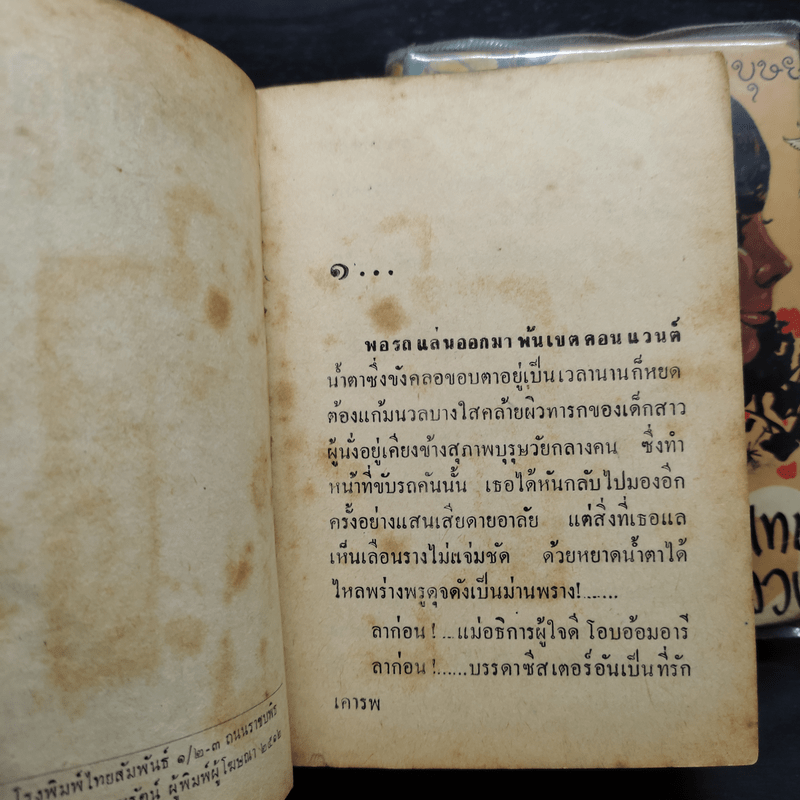 โรงพิมพ์ไทยสัมพันธ์ ๑/๒-๓ ถนนราชบพิธ
ผู้พิมพ์ผู้โฆษณา ๒๕๑๒
๑...
พอรถแล่นออกมา พ้นเขตคอนแวนต์
น้ำตาซึ่งขังคลอขอบตาอยู่เป็นเวลานานก็หยด
ต้องแก้มนวลบางใสคล้ายผิวทารกของเด็กสาว
ผู้นั่งอยู่เคียงข้างสุภาพบุรุษวัยกลางคน ซึ่งทำ
หน้าที่ขับรถคันนั้น เธอได้หันกลับไปมองอีก
ครั้งอย่างแสนเสียดายอาลัย แต่สิ่งที่เธอแล
เห็นเลือนรางไม่แจ่มชัด ด้วยหยาดน้ำตาได้
ไหลพร่างพรูดุจดังเป็นม่านพราง!......
ลาก่อน !...แม่อธิการผู้ใจดี โอบอ้อมอารี
ลาก่อน !......บรรดาซิสเตอร์อันเป็นที่รัก
เคารพ
บุษย